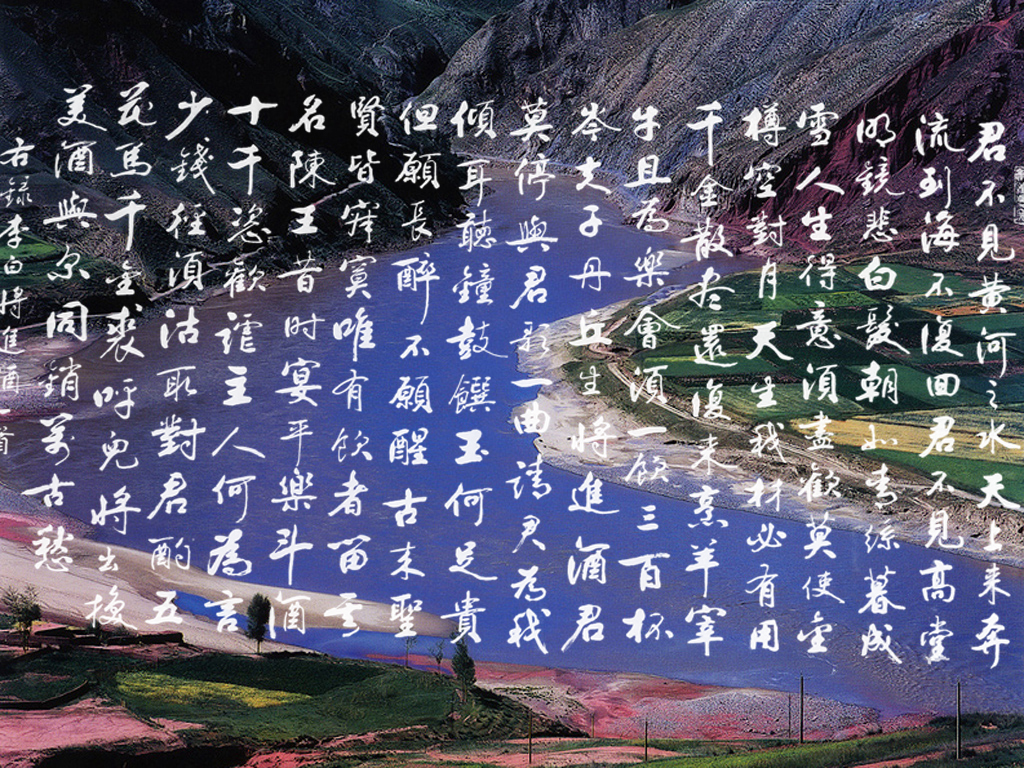 君不見黄河之水天上来奔
流到海不復回君不見高堂
明鏡悲白髮朝如青絲暮成
雪人生得意須盡歡莫使金
樽空對月天生我材必有用
千金散尽還復来烹羊宰
牛且為樂會須一飲三百杯
岑夫子丹丘生將進酒君
莫停與君歌一曲請君為我
傾耳聽鐘鼓饌玉何足貴
但願長醉不願醒古来聖
賢皆寂寞唯有飲者留其
名陳王昔时宴平樂斗酒
十千恣歡謔主人何為言
少錢径須沽取對君酌五
花馬千金裘呼兒將出換
美酒與尔同銷萬古愁
右録李白將進酒一首